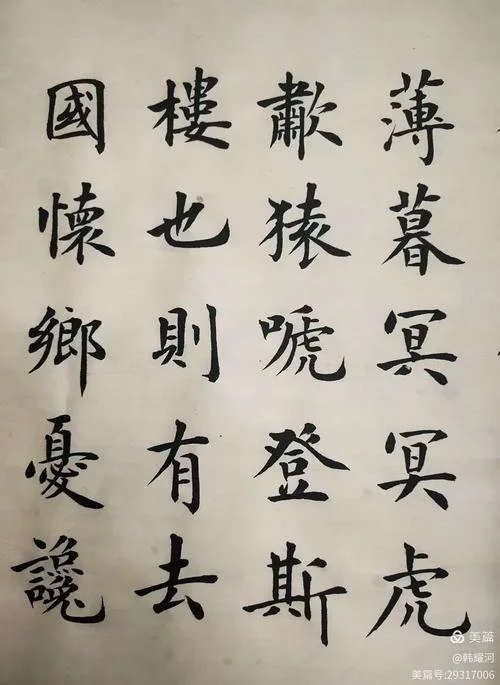 薄暮冥冥虎
歗猿嗁登斯
樓也則有去
國懷鄉憂讒
美篇
@韩耀河
美篇号:29317006